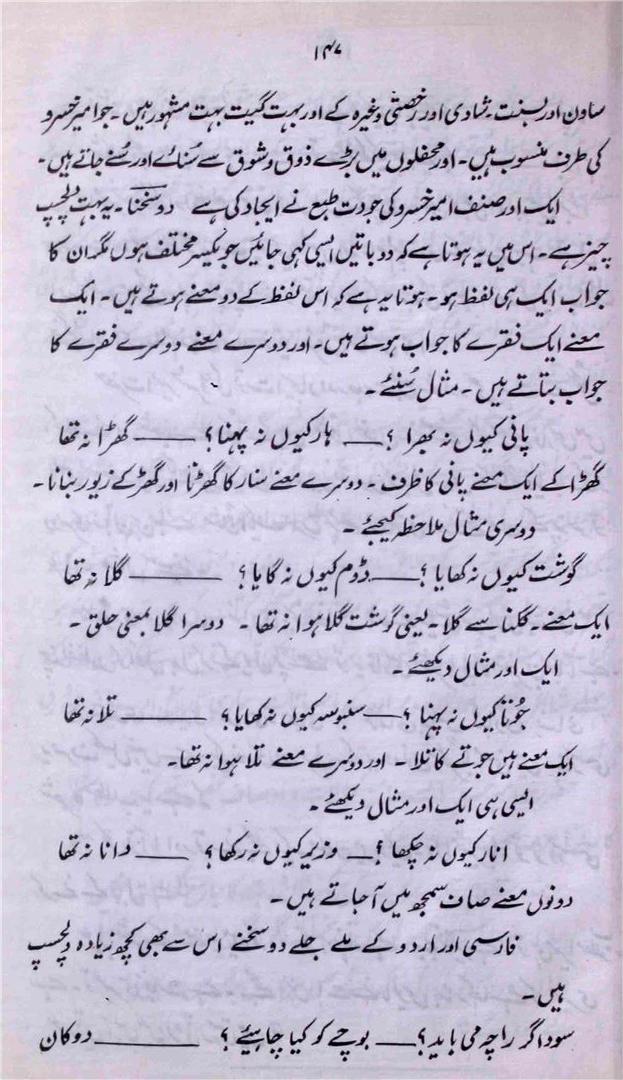 ۱۴۷
ساون اور بسنت ۔ شادی اور رخصتی وغیرہ کے اور بہت گیت بہت مشہور ہیں ۔ جو امیر خسرو
کی طرف منسوب ہیں ۔ اور محفلوں میں بڑے ذوق و شوق سے سُنائے اور سُنے جاتے ہیں ۔
ایک اور صنف امیر خسرو کی جودت طبع نے ایجاد کی ہے دو سخنا ۔ یہ بہت دلچسپ
چیز ہے ۔ اس میں یہ ہوتا ہے کہ دو باتیں ایسی کہی جائیں جو یکسر مختلف ہوں مگر ان کا
جواب ایک ہی لفظ ہو ۔ ہوتا یہ ہے کہ اس لفظ کے دو معنے ہوتے ہیں ۔ ایک
معنے ایک فقرے کا جواب ہوتے ہیں ۔ اور دوسرے معنے دوسرے فقرے کا
جواب بتاتے ہیں ۔ مثال سُنئے ۔
پانی کیوں نہ بھرا ؟ —— ہار کیوں نہ پہنا ؟ —— گھڑا نہ تھا
گھڑا کے ایک معنے پانی کا ظرف ۔ دوسرے معنے سنار کا گھڑنا اور گھڑ کے زیور بنانا ۔
دوسری مثال ملاحظہ کیجئے ۔
گوشت کیوں نہ کھایا ؟ —— ڈوم کیوں نہ گایا ؟ —— گلا نہ تھا
ایک معنے ۔ گلنا سے گلا ۔ یعنی گوشت گلا ہوا نہ تھا ۔ دوسرا گلا بمعنی حلق ۔
ایک اور مثال دیکھئے ۔
جُوتا کیوں نہ پہنا ؟ —— سنبوسہ کیوں نہ کھایا ؟ —— تلا نہ تھا
ایک معنے ہیں جوتے کا تلا ۔ اور دوسرے معنے تلا ہوا نہ تھا ۔
ایسی ہی ایک اور مثال دیکھئے ۔
انار کیوں نہ چکھا ؟ —— وزیر کیوں نہ رکھا ؟ —— دانا نہ تھا
دونوں معنے صاف سمجھ میں آ جاتے ہیں ۔
فارسی اور اردو کے ملے جلے دو سخنے اس سے بھی کچھ زیادہ دلچسپ
ہیں ۔
سوداگر را چہ می باید ؟ —— بوچے کو کیا چاہیئے ؟ —— دوکان